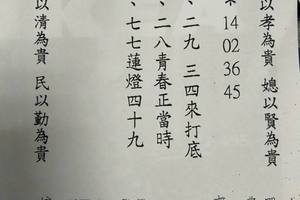 以孝為貴 媳以賢為貴
14
02
36
45
、二九 三四來打底
、二八青春正當時
、七七蓮燈四十九
以清為貴 民以勤為貴